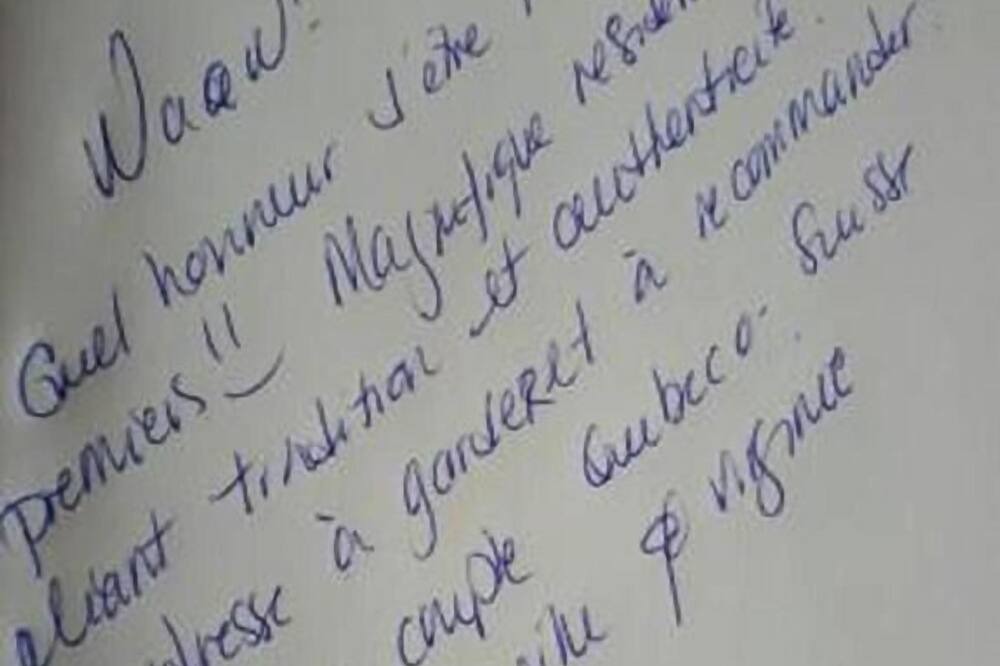 Waaw!
Quel honneur d'être
premiers !! Magnifique residen
aliant tradition et authenticité.
adresse à garder et à recommander.
couple Québeco-Suisse
& Virginie